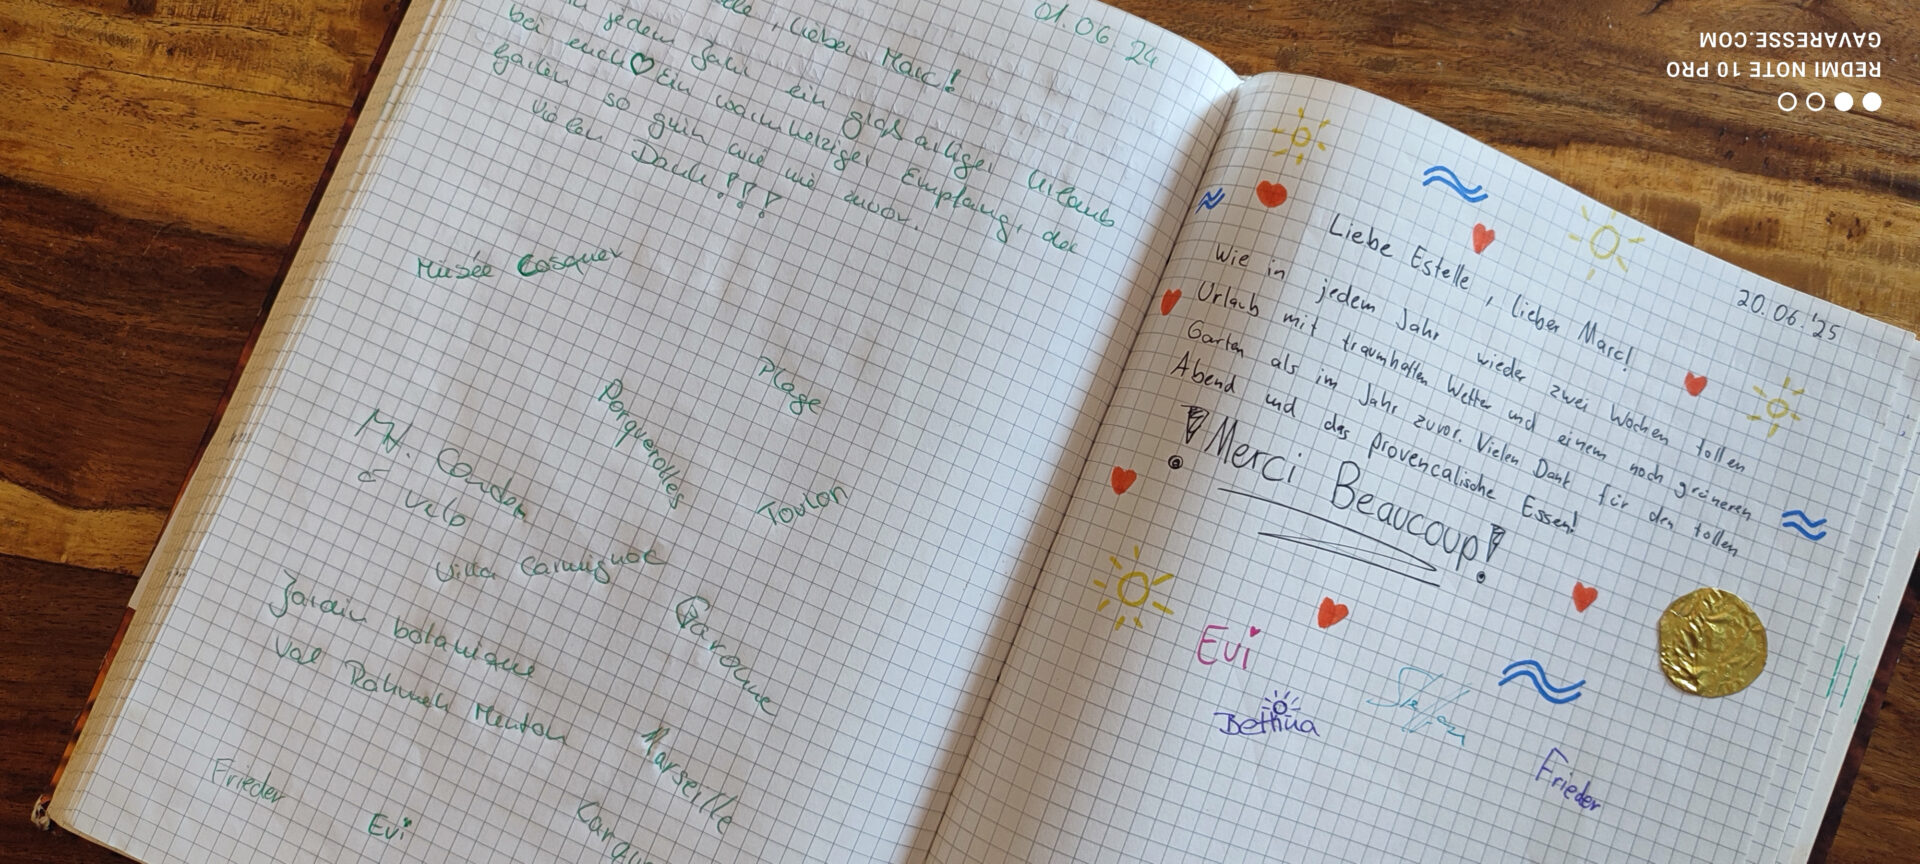 01.06.24
, lieber Marc!
jedem Jahr ein großartiger Urlaub
bei euch ♡ Ein warmherziger Empfang, der
Garten so grün wie nie zuvor.
Vielen Dank!!!
Musée Cosquer
Plage
Porquerolles
Mt. Coudon
à velo
Toulon
Villa Carmignac
Garonne
Jardin botanique
Val Rahmeh Menton
Marseille
Frieder
Evi
20.06.'25
Liebe Estelle, lieber Marc!
Wie in jedem Jahr wieder zwei Wochen tollen
Urlaub mit traumhaften Wetter und einem noch grüneren
Garten als im Jahr zuvor. Vielen Dank für den tollen
Abend und das provencalische Essen!
!Merci Beaucoup!
Evi
Bettina
Steffen
Frieder
REDMI NOTE 10 PRO
GAVARESSE.COM